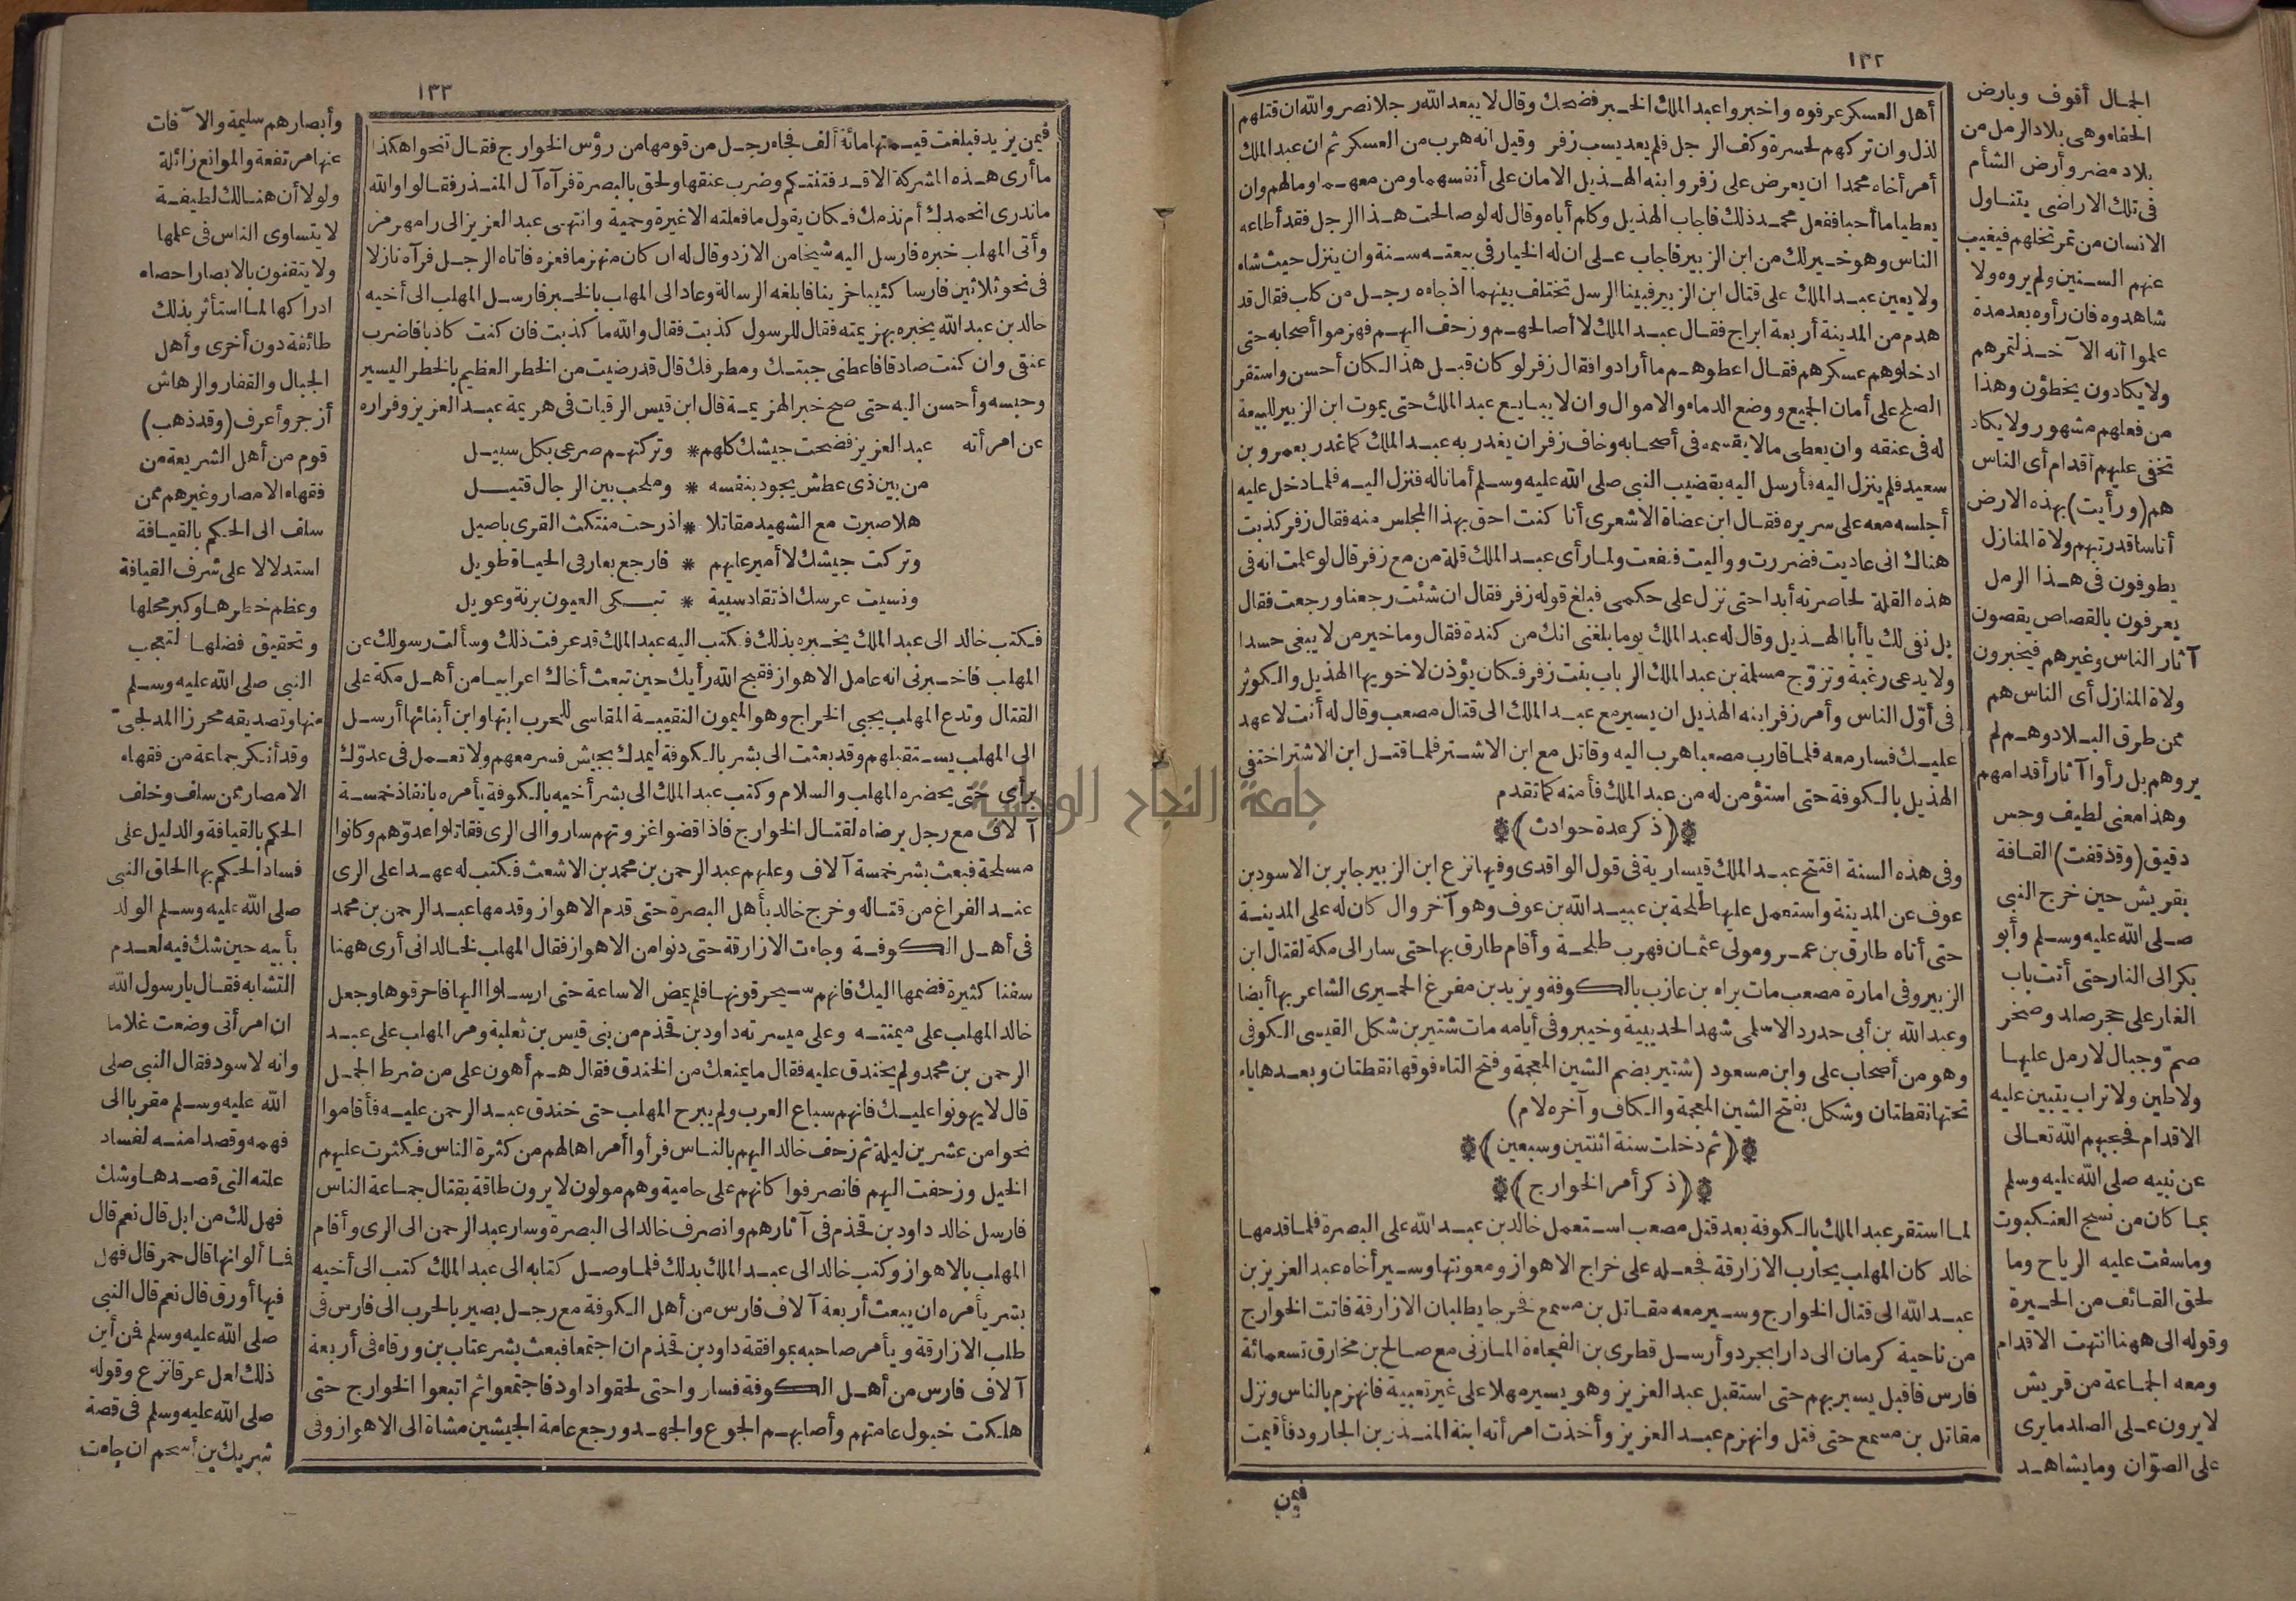 ١٣٢
أهل العسكر عرفوه واخبروا عبد الملك الخبر فضحك وقال لا يبعد الله رجلا نصر والله ان قتلهم
لذل وان تركهم لحسرة وكف الرجل فلم يعد يسب زفر وقيل انه هرب من العسكر ثم ان عبد الملك
أمر أخاه محمدا ان يعرض على زفر وابنه الهذيل الامان على أنفسهما ومن معهما ومالهم وان
يعطيا ما أحبا ففعل محمد ذلك فاجاب الهذيل وكلم أباه وقال له لو صالحت هذا الرجل فقد أطاعه
الناس وهو خير لك من ابن الزبير فاجاب على ان له الخيار فى بيعته سنة وان ينزل حيث شاء
ولا يعين عبد الملك على قتال ابن الزبير فبينا الرسل تختلف بينهما اذ جاءه رجل من كلب فقال قد
هدم من المدينة أربعة ابراج فقال عبد الملك لا أصالحهم وزحف اليهم فهزموا أصحابه حتى
ادخلوهم عسكرهم فقال اعطوهم ما أرادوا فقال زفر لو كان قبل هذا لكان أحسن واستقر
الصلح على أمان الجميع ووضع الدماء والاموال وان لا يبايع عبد الملك حتى يموت ابن الزبير للبيعة
له فى عنقه وان يعطى مالا يقسمه فى أصحابه وخاف زفر ان يغدر به عبد الملك كما غدر بعمرو بن
سعيد فلم ينزل اليه فأرسل اليه بقضيب النبى صلى الله عليه وسلم أمانا له فنزل اليه فلما دخل عليه
أجلسه معه على سريره فقال ابن عضاة الاشعرى أنا كنت احق بهذا المجلس منه فقال زفر كذبت
هناك انى عاديت فضررت وواليت فنفعت ولما رأى عبد الملك قلة من مع زفر قال لو علمت انه فى
هذه القلة لحاصرته أبدا حتى نزل على حكمى فبلغ قوله زفر فقال ان شئت رجعنا ورجعت فقال
بل نفى لك يا أبا الهذيل وقال له عبد الملك يوما بلغنى انك من كندة فقال وما خير من لا يبغى حسدا
ولا يدعى رغبة وتزوّج مسلمة بن عبد الملك الرباب بنت زفر فكان يؤذن لاخويها الهذيل والكوثر
فى أوّل الناس وأمر زفر ابنه الهذيل ان يسير مع عبد الملك الى قتال مصعب وقال له أنت لا عهد
عليك فسار معه فلما قارب مصعبا هرب اليه وقاتل مع ابن الاشتر فلما قتل ابن الاشتر اختفى
الهذيل بالكوفة حتى استؤمن له من عبد الملك فأمنه كما تقدم
(ذكر عدة حوادث)
وفى هذه السنة افتتح عبد الملك قيسارية فى قول الواقدى وفيها نزع ابن الزبير جابر بن الاسود بن
عوف عن المدينة واستعمل عليها طلحة بن عبيد الله بن عوف وهو آخر وال كان له على المدينة
حتى أتاه طارق بن عمرو مولى عثمان فهرب طلحة وأقام طارق بها حتى سار الى مكة لقتال ابن
الزبير وفى امارة مصعب مات براء بن عازب بالكوفة ويزيد بن مفرغ الحميرى الشاعر بها أيضا
وعبد الله بن أبى حدرد الاسلمى شهد الحديبية وخيبر وفى أيامه مات شتير بن شكل القيسى الكوفى
وهو من أصحاب على وابن مسعود (شتير بضم الشين المعجمة وفتح التاء فوقها نقطتان وبعدها ياء
تحتها نقطتان وشكل بفتح الشين المعجمة والكاف وآخره لام)
(ثم دخلت سنة اثنتين وسبعين)
(ذكر أمر الخوارج)
لما استقر عبد الملك بالكوفة بعد قتل مصعب استعمل خالد بن عبد الله على البصرة فلما قدمها
خالد كان المهلب يحارب الازارقة فجعله على خراج الاهواز ومعونتها وسير أخاه عبد العزيز بن
عبد الله الى قتال الخوارج وسير معه مقاتل بن مسمع فخرجا يطلبان الازارقة فاتت الخوارج
من ناحية كرمان الى دارابجرد وأرسل قطرى بن الفجاءة المازنى مع صالح بن مخارق تسعمائة
فارس فاقبل يسير بهم حتى استقبل عبد العزيز وهو يسير مهلا على غير تعبية فانهزم بالناس ونزل
مقاتل بن مسمع حتى قتل وانهزم عبد العزيز وأخذت امرأته ابنة المنذر بن الجارود فأقيمت
فيمن
الجبال أقوف وبارض
الجفاء وهى بلاد الرمل من
بلاد مضر وأرض الشأم
فى تلك الاراضى يتناول
الانسان من تمر نخلهم فيغيب
عنهم السنين ولم يروه ولا
شاهدوه فان رأوه بعد مدة
علموا أنه الآخذ لتمرهم
ولا يكادون يخطؤن وهذا
من فعلهم مشهور ولا يكاد
تخفى عليهم أقدام أى الناس
هم (ورأيت) بهذه الارض
أناسا قد رتبهم ولاة المنازل
يطوفون فى هذا الرمل
يعرفون بالقصاص يقصون
آثار الناس وغيرهم فيخبرون
ولاة المنازل أى الناس هم
ممن طرق البلاد وهم لم
يروهم بل رأوا آثار أقدامهم
وهذا معنى لطيف وحس
دقيق (وقد قفت) القافة
بقريش حين خرج النبى
صلى الله عليه وسلم وأبو
بكر الى النار حتى أتت باب
الغار على حجر صلد وصخر
صمّ وجبال لا رمل عليها
ولا طين ولا تراب يتبين عليه
الاقدام فحجبهم الله تعالى
عن نبيه صلى الله عليه وسلم
بما كان من نسج العنكبوت
وما سفت عليه الرياح وما
لحق القائف من الحيرة
وقوله الى ههنا انتهت الاقدام
ومعه الجماعة من قريش
لا يرون على الصلد ما يرى
على الصوّان وما يشاهد
١٣٣
فيمن يزيد فبلغت قيمتها مائة ألف فجاء رجل من قومها من رؤس الخوارج فقال تنحوا هكذا
ما أرى هذه المشركة الا قد فتنتكم وضرب عنقها ولحق بالبصرة فرآه آل المنذر فقالوا والله
ما ندرى انحمدك أم نذمك فكان يقول ما فعلته الا غيرة وحمية وانتهى عبد العزيز الى رامهرمز
وأتى المهلب خبره فارسل اليه شيخا من الازد وقال له ان كان منهزما فعزه فاتاه الرجل فرآه نازلا
فى نحو ثلاثين فارسا كئيبا حزينا فابلغه الرسالة وعاد الى المهلب بالخبر فارسل المهلب الى أخيه
خالد بن عبد الله يخبره بهزيمته فقال للرسول كذبت فقال والله ما كذبت فان كنت كاذبا فاضرب
عنقى وان كنت صادقا فاعطنى جبتك ومطرفك قال قد رضيت من الخطر العظيم بالخطر اليسير
وحبسه وأحسن اليه حتى صح خبر الهزيمة قال ابن قيس الرقيات فى هزيمة عبد العزيز وفراره
عن امرأته عبد العزيز فضحت جيشك كلهم * وتركتهم صرعى بكل سبيل
من بين ذى عطش يجود بنفسه * وملحب بين الرجال قتيل
هلا صبرت مع الشهيد مقاتلا * اذ رحت منتكث القرى باصيل
وتركت جيشك لا أمير عليهم * فارجع بعار فى الحياة طويل
ونسيت عرسك اذ تقاد سبية * تبكى العيون برنة وعويل
فكتب خالد الى عبد الملك يخبره بذلك فكتب اليه عبد الملك قد عرفت ذلك وسألت رسولك عن
المهلب فاخبرنى انه عامل الاهواز فقبح الله رأيك حين تبعث أخاك اعرابيا من أهل مكة على
القتال وتدع المهلب يجبى الخراج وهو الميمون النقيبة المقاسى للحرب ابنها وابن أبنائها أرسل
الى المهلب يستقبلهم وقد بعثت الى بشر بالكوفة ليمدك بجيش فسر معهم ولا تعمل فى عدوّك
برأى حتى يحضره المهلب والسلام وكتب عبد الملك الى بشر أخيه بالكوفة يأمره بانفاذ خمسة
آلاف مع رجل يرضاه لقتال الخوارج فاذا قضوا غزوتهم ساروا الى الرى فقاتلوا عدوّهم وكانوا
مسلحة فبعث بشر خمسة آلاف وعليهم عبد الرحمن بن محمد بن الاشعث فكتب له عهدا على الرى
عند الفراغ من قتاله وخرج خالد بأهل البصرة حتى قدم الاهواز وقدمها عبد الرحمن بن محمد
فى أهل الكوفة وجاءت الازارقة حتى دنوا من الاهواز فقال المهلب لخالد انى أرى ههنا
سفنا كثيرة فضمها اليك فانهم سيحرقونها فلم يمض الا ساعة حتى ارسلوا اليها فاحرقوها وجعل
خالد المهلب على ميمنته وعلى ميسرته داود بن قحذم من بنى قيس بن ثعلبة ومر المهلب على عبد
الرحمن بن محمد ولم يخندق عليه فقال ما يمنعك من الخندق فقال هم أهون على من ضرط الجمل
قال لا يهونوا عليك فانهم سباع العرب ولم يبرح المهلب حتى خندق عبد الرحمن عليه فأقاموا
نحوا من عشرين ليلة ثم زحف خالد اليهم بالناس فرأوا أمرا هالهم من كثرة الناس فكثرت عليهم
الخيل وزحفت اليهم فانصرفوا كانهم على حامية وهم مولون لا يرون طاقة بقتال جماعة الناس
فارسل خالد داود بن قحذم فى آثارهم وانصرف خالد الى البصرة وسار عبد الرحمن الى الرى وأقام
المهلب بالاهواز وكتب خالد الى عبد الملك بذلك فلما وصل كتابه الى عبد الملك كتب الى أخيه
بشر يأمره ان يبعث أربعة آلاف فارس من أهل الكوفة مع رجل بصير بالحرب الى فارس فى
طلب الازارقة ويأمر صاحبه بموافقة داود بن قحذم ان اجتمعا فبعث بشر عتاب بن ورقاء فى أربعة
آلاف فارس من أهل الكوفة فساروا حتى لحقوا داود فاجتمعوا ثم اتبعوا الخوارج حتى
هلكت خيول عامتهم وأصابهم الجوع والجهد ورجع عامة الجيشين مشاة الى الاهواز وفى
وأبصارهم سليمة والآفات
عنها مرتفعة والموانع زائلة
ولولا أن هنالك لطيفة
لا يتساوى الناس فى علمها
ولا يتقنون بالابصار احصاء
ادراكها لما استأثر بذلك
طائفة دون أخرى وأهل
الجبال والقفار والرهاش
أزجر وأعرف (وقد ذهب)
قوم من أهل الشريعة من
فقهاء الامصار وغيرهم ممن
سلف الى الحكم بالقيافة
استدلالا على شرف القيافة
وعظم خطرها وكبر محلها
وتحقيق فضلها لتعجب
النبى صلى الله عليه وسلم
منها وتصديقه محرزا المدلجىّ
وقد أنكر جماعة من فقهاء
الامصار ممن سلف وخلف
الحكم بالقيافة والدليل على
فساد الحكم بها الحاق النبى
صلى الله عليه وسلم الولد
بأبيه حين شك فيه لعدم
التشابه فقال يا رسول الله
ان امرأتى وضعت غلاما
وانه لاسود فقال النبى صلى
الله عليه وسلم مقربا الى
فهمه وقصدا منه لفساد
علته التى قصدها وشك
فهل لك من ابل قال نعم قال
فما ألوانها قال حمر قال فهل
فيها أورق قال نعم قال النبى
صلى الله عليه وسلم فمن أين
ذلك لعل عرقا نزع وقوله
صلى الله عليه وسلم فى قصة
شريك بن أسحم ان جاءت
جامعة النجاح الوطنية